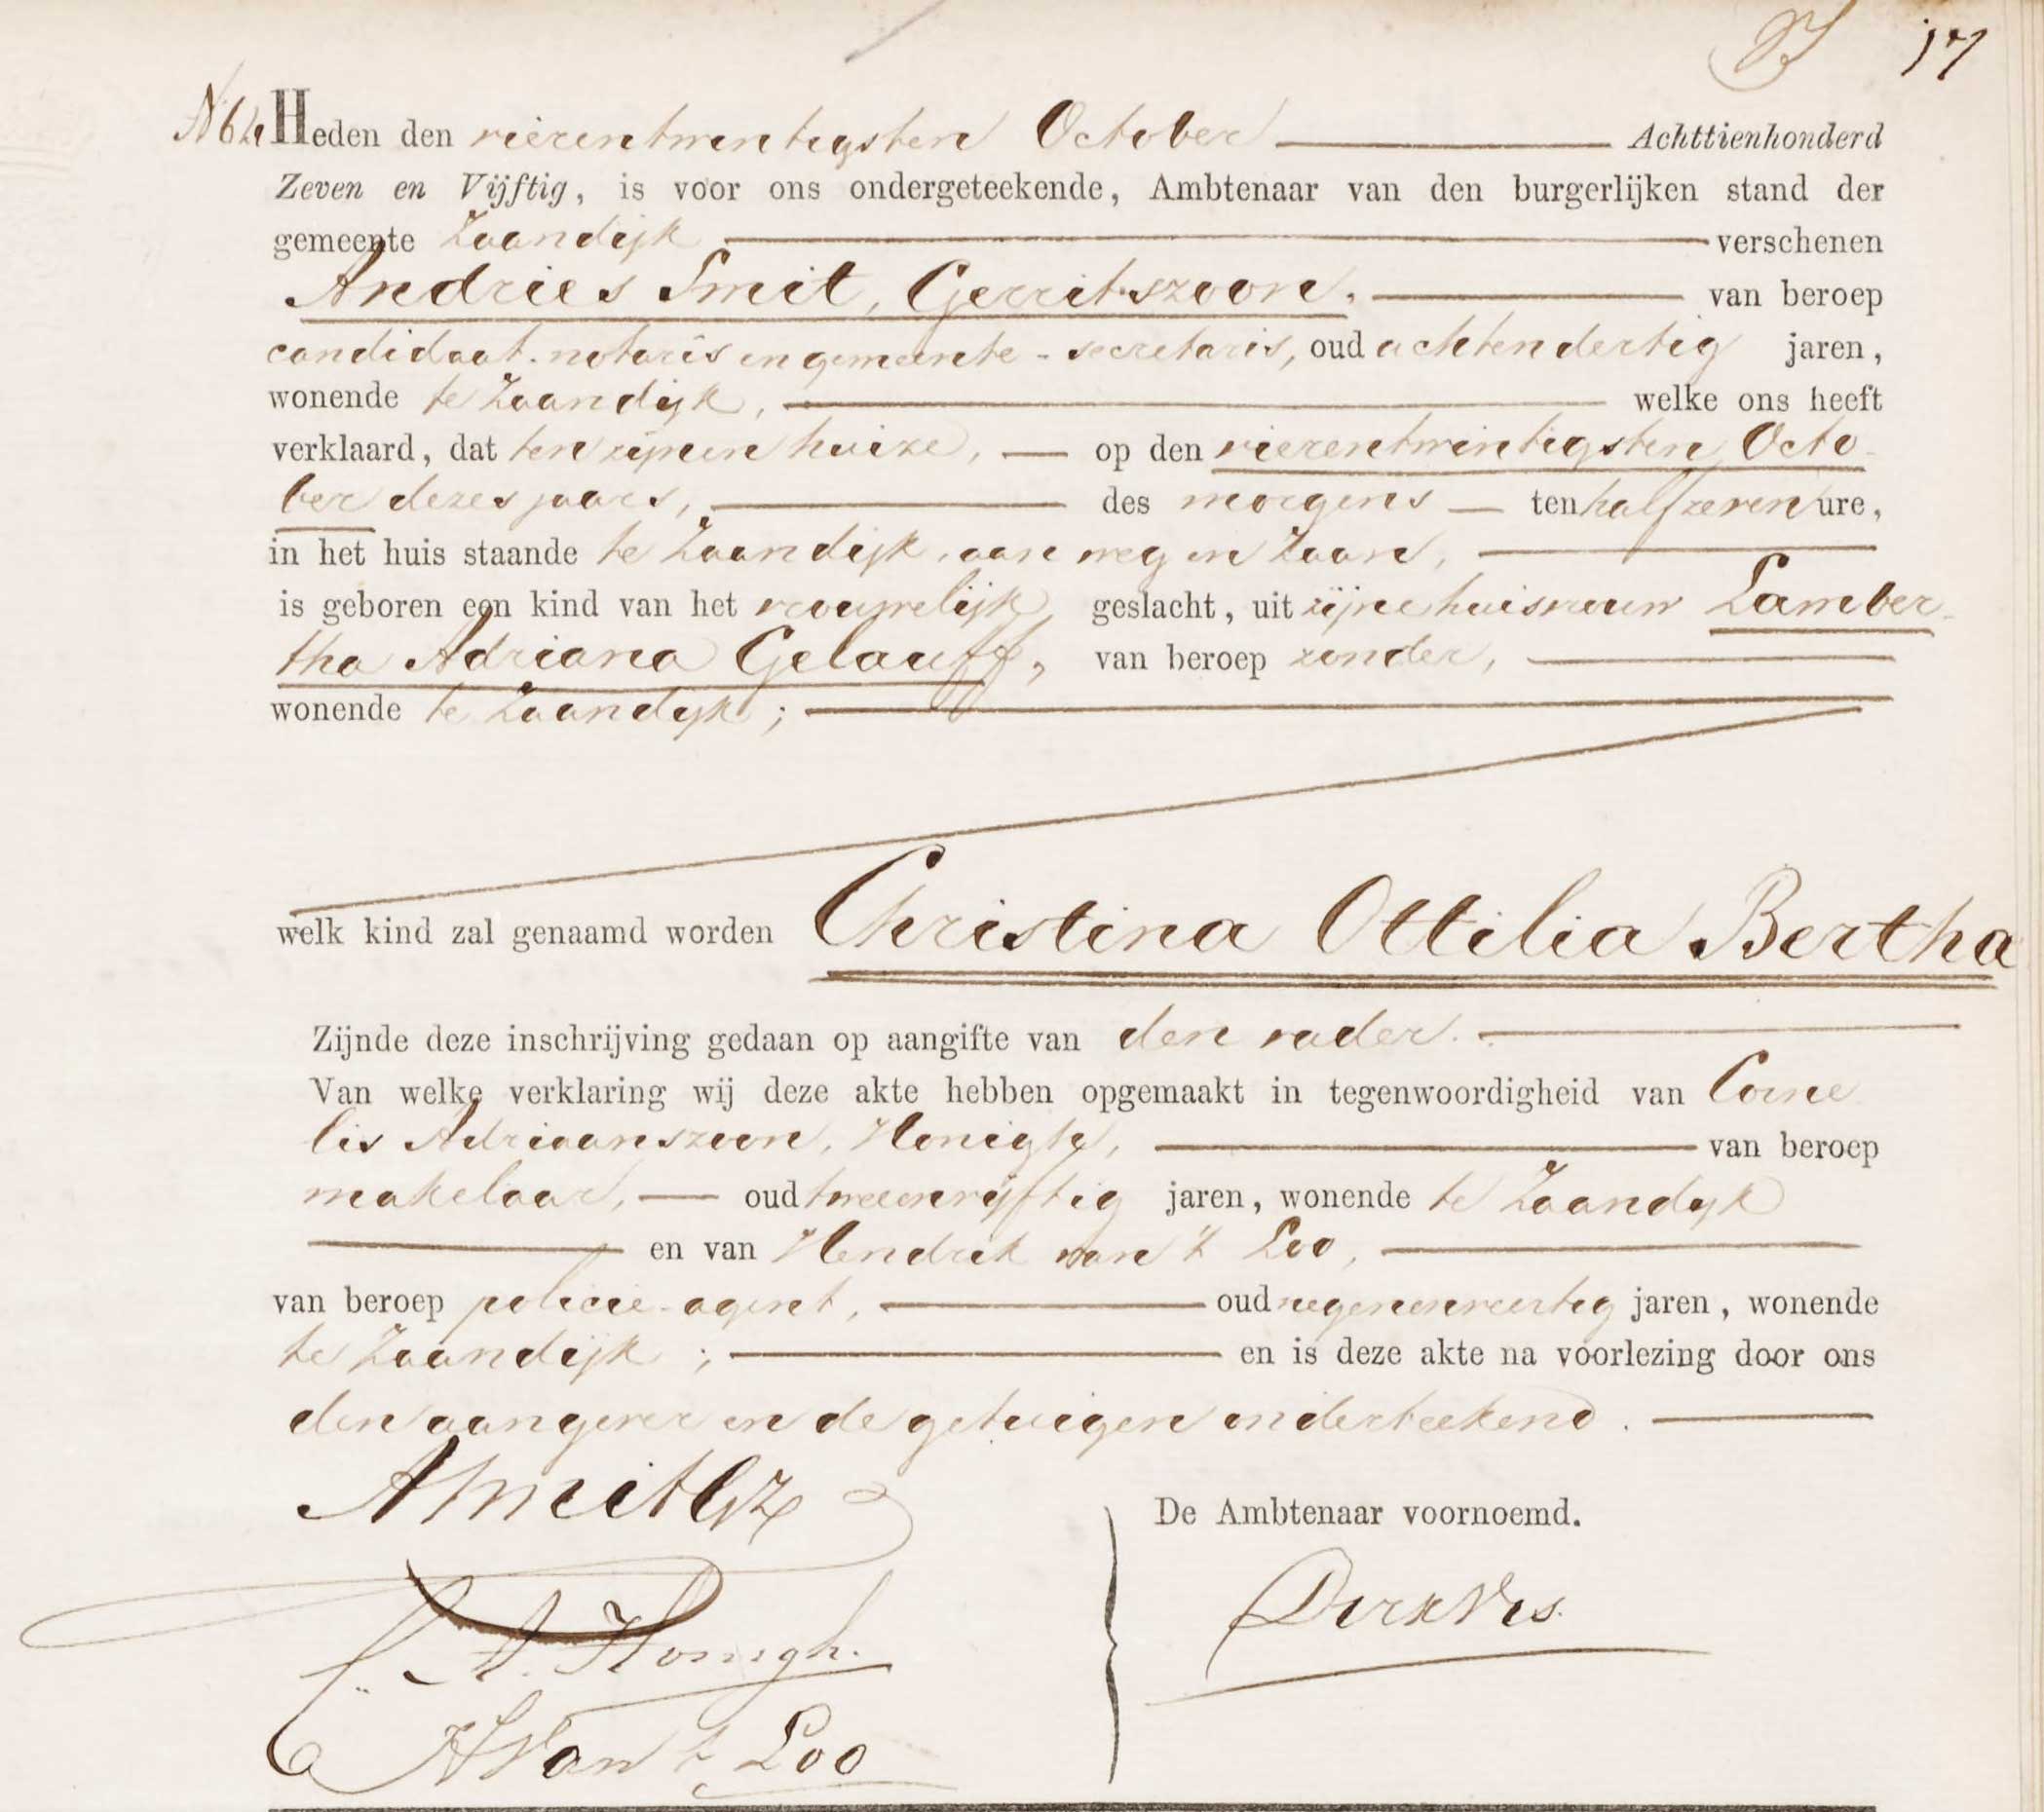 17
N 64 Heden den vierentwintigsten October Achttienhonderd
Zeven en Vijftig, is voor ons ondergeteekende, Ambtenaar van den burgerlijken stand der
gemeente Zaandijk verschenen
Andries Smit, Gerritszoon, van beroep
candidaat-notaris en gemeente-secretaris, oud achtendertig jaren,
wonende te Zaandijk, welke ons heeft
verklaard, dat ten zijnen huize, op den vierentwintigsten Octo
ber dezes jaars, des morgens ten half zeven ure,
in het huis staande te Zaandijk, aan weg en Zaan,
is geboren een kind van het vrouwelijk geslacht, uit zijne huisvrouw Lamber-
tha Adriana Gelauff, van beroep zonder,
wonende te Zaandijk;
welk kind zal genaamd worden Christina Ottilia Bertha
Zijnde deze inschrijving gedaan op aangifte van den vader.
Van welke verklaring wij deze akte hebben opgemaakt in tegenwoordigheid van Corne
lis Adriaanszoon, Honigh, van beroep
makelaar, oud tweeenvijftig jaren, wonende te Zaandijk
en van Hendrik van 't Loo,
van beroep policie-agent, oud negenenveertig jaren, wonende
te Zaandijk; en is deze akte na voorlezing door ons
den aangever en de getuigen onderteekend.
ASmit Gz
De Ambtenaar voornoemd.
Dirk Vis.
C. A. Honigh.
H Van t Loo